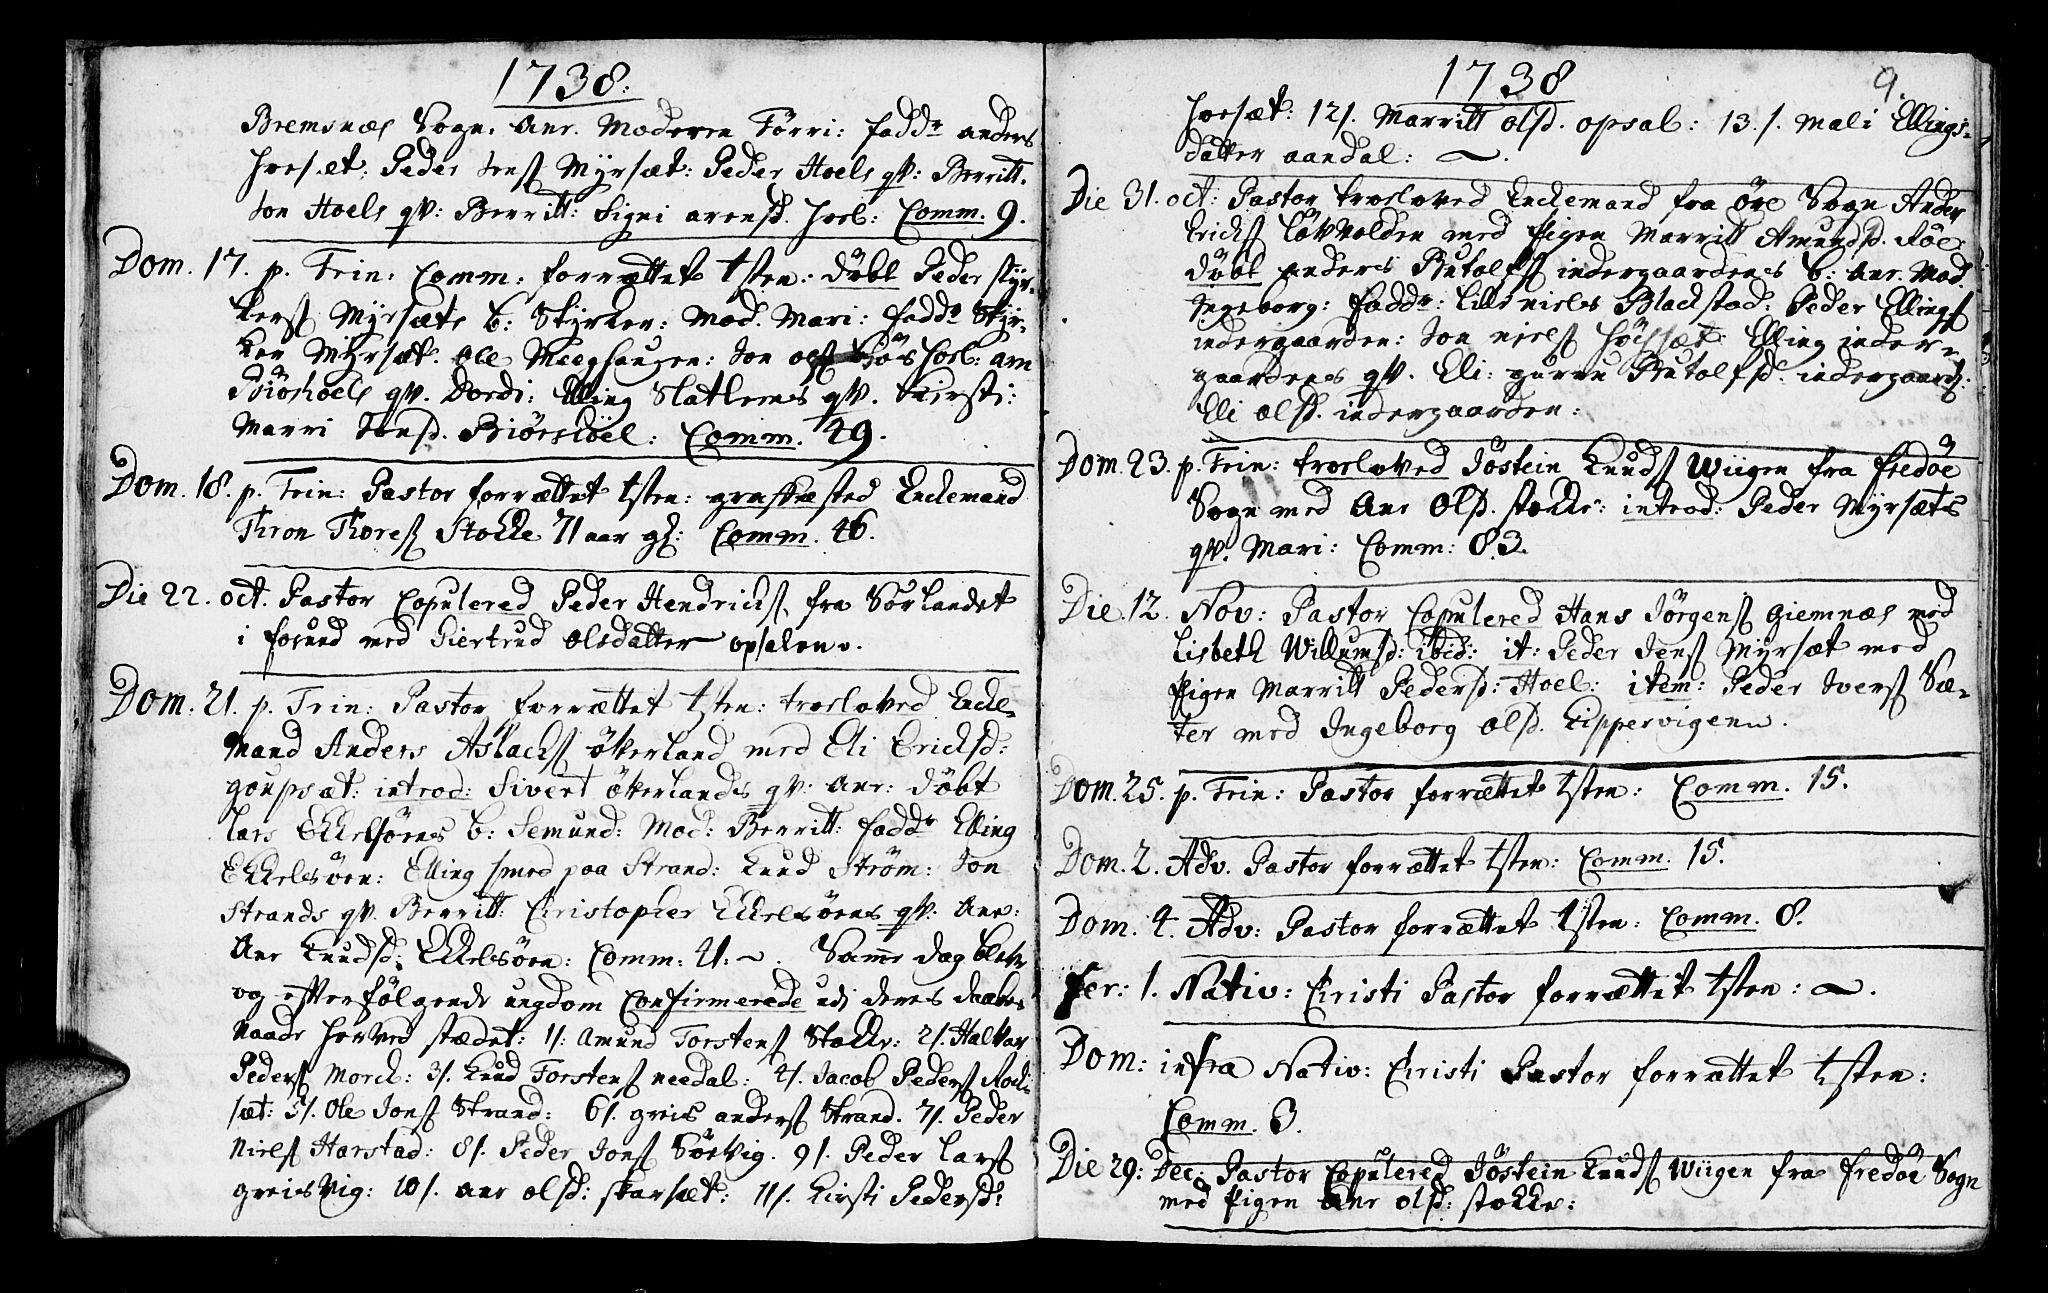 1738.
Bremsnæs Sogn. Anr. Moderen Törri: fadd: anders
Hoesæt: Peder Jens Myrsæt: Peder Hoels qv: Berritt.
Jon Hoels qv: Berritt: Signi arensd. Hoel: Comm. 9.
Dom. 17. p. Trin: Comm: forrættet tsten: döbt Peder Styr-
kers Myrsæts b: Styrker: Mod. Mari: fadd: Styr-
ker Myrsæt. Ole Meeghaugen: Jon ols
qv. Dordi: Elling Slatlems qv. Kirsti:
Marri Jonsd. Comm. 29.
Dom. 18. p. Trin: Pastor forrættet tsten: graffæsted Enckemand
Thron Thores Stokke 71 aar gl: Comm. 46.
Die 22. oct. Pastor Copulered Peder Hendricks. fra Sörlandet
i forund med Giertrud Olsdatter opsalen.
Dom. 21. p. Trin: Pastor forrættet tsten: troeloved Encke-
mand Anders Aslachs ökerland med Eli Ericksd:
goupsæt: introd: Sivert ökerlands qv: Anr: döbt
Lars Ekkelsöens b: Semund: Mod: Berritt: fadd: Elling
Ekkelsöen: Elling smed paa Strand: Knud Ström: Jon
Strands qv. Berritt: Christopher Ekkelsöens qv: Anr:
Anr Knudsd: Ekkelsöen: Comm: 21: ~. Samme dag blev
og efterfölgende ungdom Confirmerede udi deres daabs-
naade her ved stædet: 1/: Amund Torstens Stokke: 2/. Halvor
Peders Morck: 3/. Knud Torstens needal: 4/. Jacob Peders Rock-
sæt: 5/. Ole Jons Strand: 6/. greis anders Strand. 7/. Peder
Niels Harstad: 8/. Peder Jons Sörvig. 9/. Peder Lars
greisvig: 10/. Anr olsd: skarsæt: 11/. Kirsti Pedersd:
1738
9.
Hoesæt: 12/. Marritt olsd. opsal: 13./. Mali Ellings-
datter aandal: ~.
Die 31. oct: Pastor troeloved Enckemand fra Öre Sogn Ander
Ericks Lökvolden med Pigen Marritt Amundsd. Röe:
döbt Anders Butolfs indergaardens b: Anr. Mod.
Ingeborg: fadd: Lille niels Blackstad: Peder Ellings
indergaarden: Jon niels Höysæt: Elling inder-
gaardens qv. Eli: gurru Butolfsd. indergaard:
Eli olsd. indergaarden:
Dom. 23. p. Trin: troeloved Jöstein Knuds Wiigen fra fredöe
Sogn med Anr Olsd. stokke: introd: Peder Myrsæts
qv. Mari: Comm: 83.
Die. 12. Nov: Pastor Copulered Hans Jörgens Giemnæs med
Lisbeth Willumsd: ibid: it: Peder Jens Myrsæt med
Pigen Marritt Pedersd: Hoel: item: Peder Ivers Sæ-
ter med Ingeborg olsd. Kippervigen.
Dom. 25. p. Trin: Pastor forrættet tsten: Comm. 15.
Dom. 2. Adv. Pastor forrættet tsten: Comm. 15.
Dom. 4. Adv: Pastor forrættet tsten: Comm. 8.
fer: 1. Nativ: Christi Pastor forrættet tsten: ~.
Dom: infra Nativ: Christi Pastor forrættet tsten:
Comm. 3.
Die 29: Dec: Pastor Copulered Jöstein Knuds Wiigen fra fredöe Sogn
med Pigen Anr olsd: stokke: